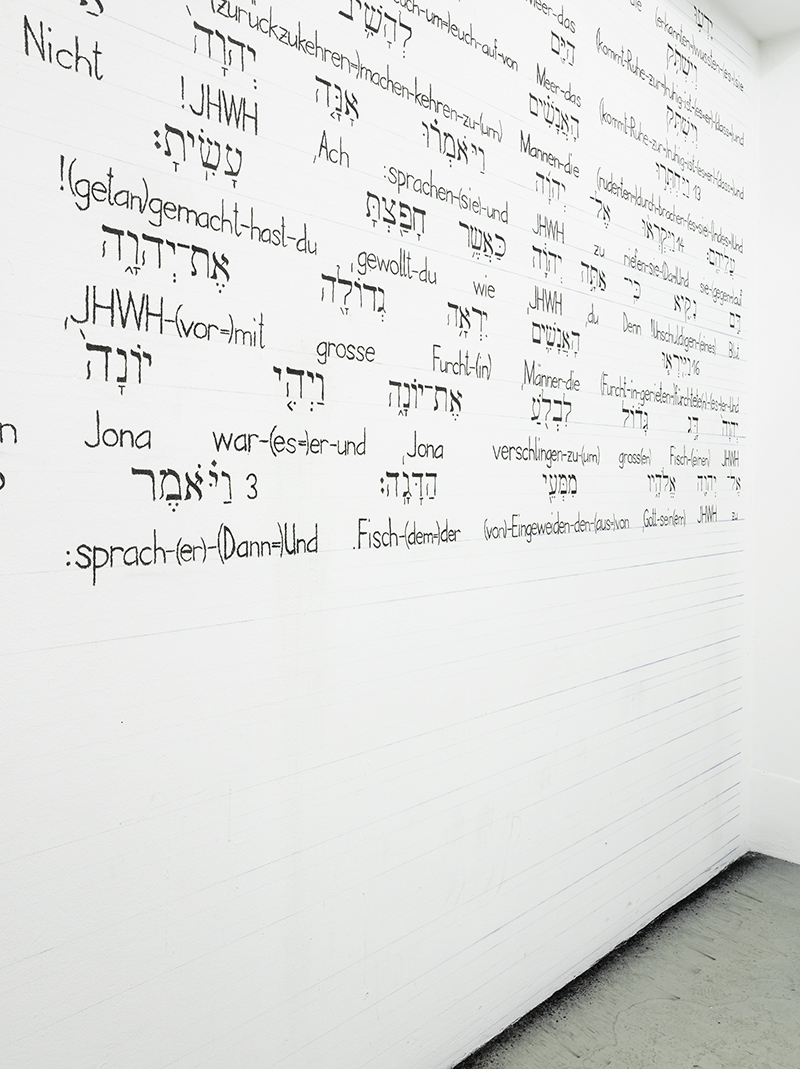 וְיִשְׁתֹּק הַיָּם
euch-um=)euch-auf-von Meer-das (kommt-Ruhe-zur=)ruhig-ist-(es=)er-(dass=)und
13 וַיַּחְתְּרוּ הָאֲנָשִׁים לְהָשִׁיב
(zurückzukehren=)machen-kehren-zu-(um) Mannen-die (ruderten=)durch-brachen-(es=)sie-(indes=)Und
עֲלֵיהֶם׃ 14 וַיִּקְרְאוּ אֶל־ יְהוָה וַיֹּאמְרוּ אָנָּה יְהוָה
Nicht !JHWH ,Ach :sprachen-(sie)-und JHWH zu riefen-sie-Da=Und sie-gegen=auf
דָּם נָקִיא כִּי־ אַתָּה יְהוָה כַּאֲשֶׁר חָפַצְתָּ עָשִׂיתָ׃
!(getan)gemacht-hast-du ,gewollt-du wie ,JHWH ,du Denn !Unschuldigen-(eines) Blut
16 וַיִּירְאוּ הָאֲנָשִׁים יִרְאָה גְדוֹלָה אֶת־יְהוָה
,JHWH-(vor=)mit grosse Furcht-(in) Männer-die (Furcht-in-gerieten=)fürchtete(n)-(es=)er-Und
יְהוָה דָּג גָּדוֹל לִבְלֹעַ אֶת־יוֹנָה וַיְהִי יוֹנָה
Jona war-(es=)er-und ,Jona verschlingen-zu-(um) gross(en) Fisch-(einen) JHWH
אֶל־ יְהוָה אֱלֹהָיו מִמְּעֵי הַדָּגָה׃ 3 וַיֹּאמֶר
:sprach-(er)-(Dann=)Und .Fisch-(dem=)der (von)-Eingeweiden-den-(aus=)von ,Gott-sein(em) JHWH zu